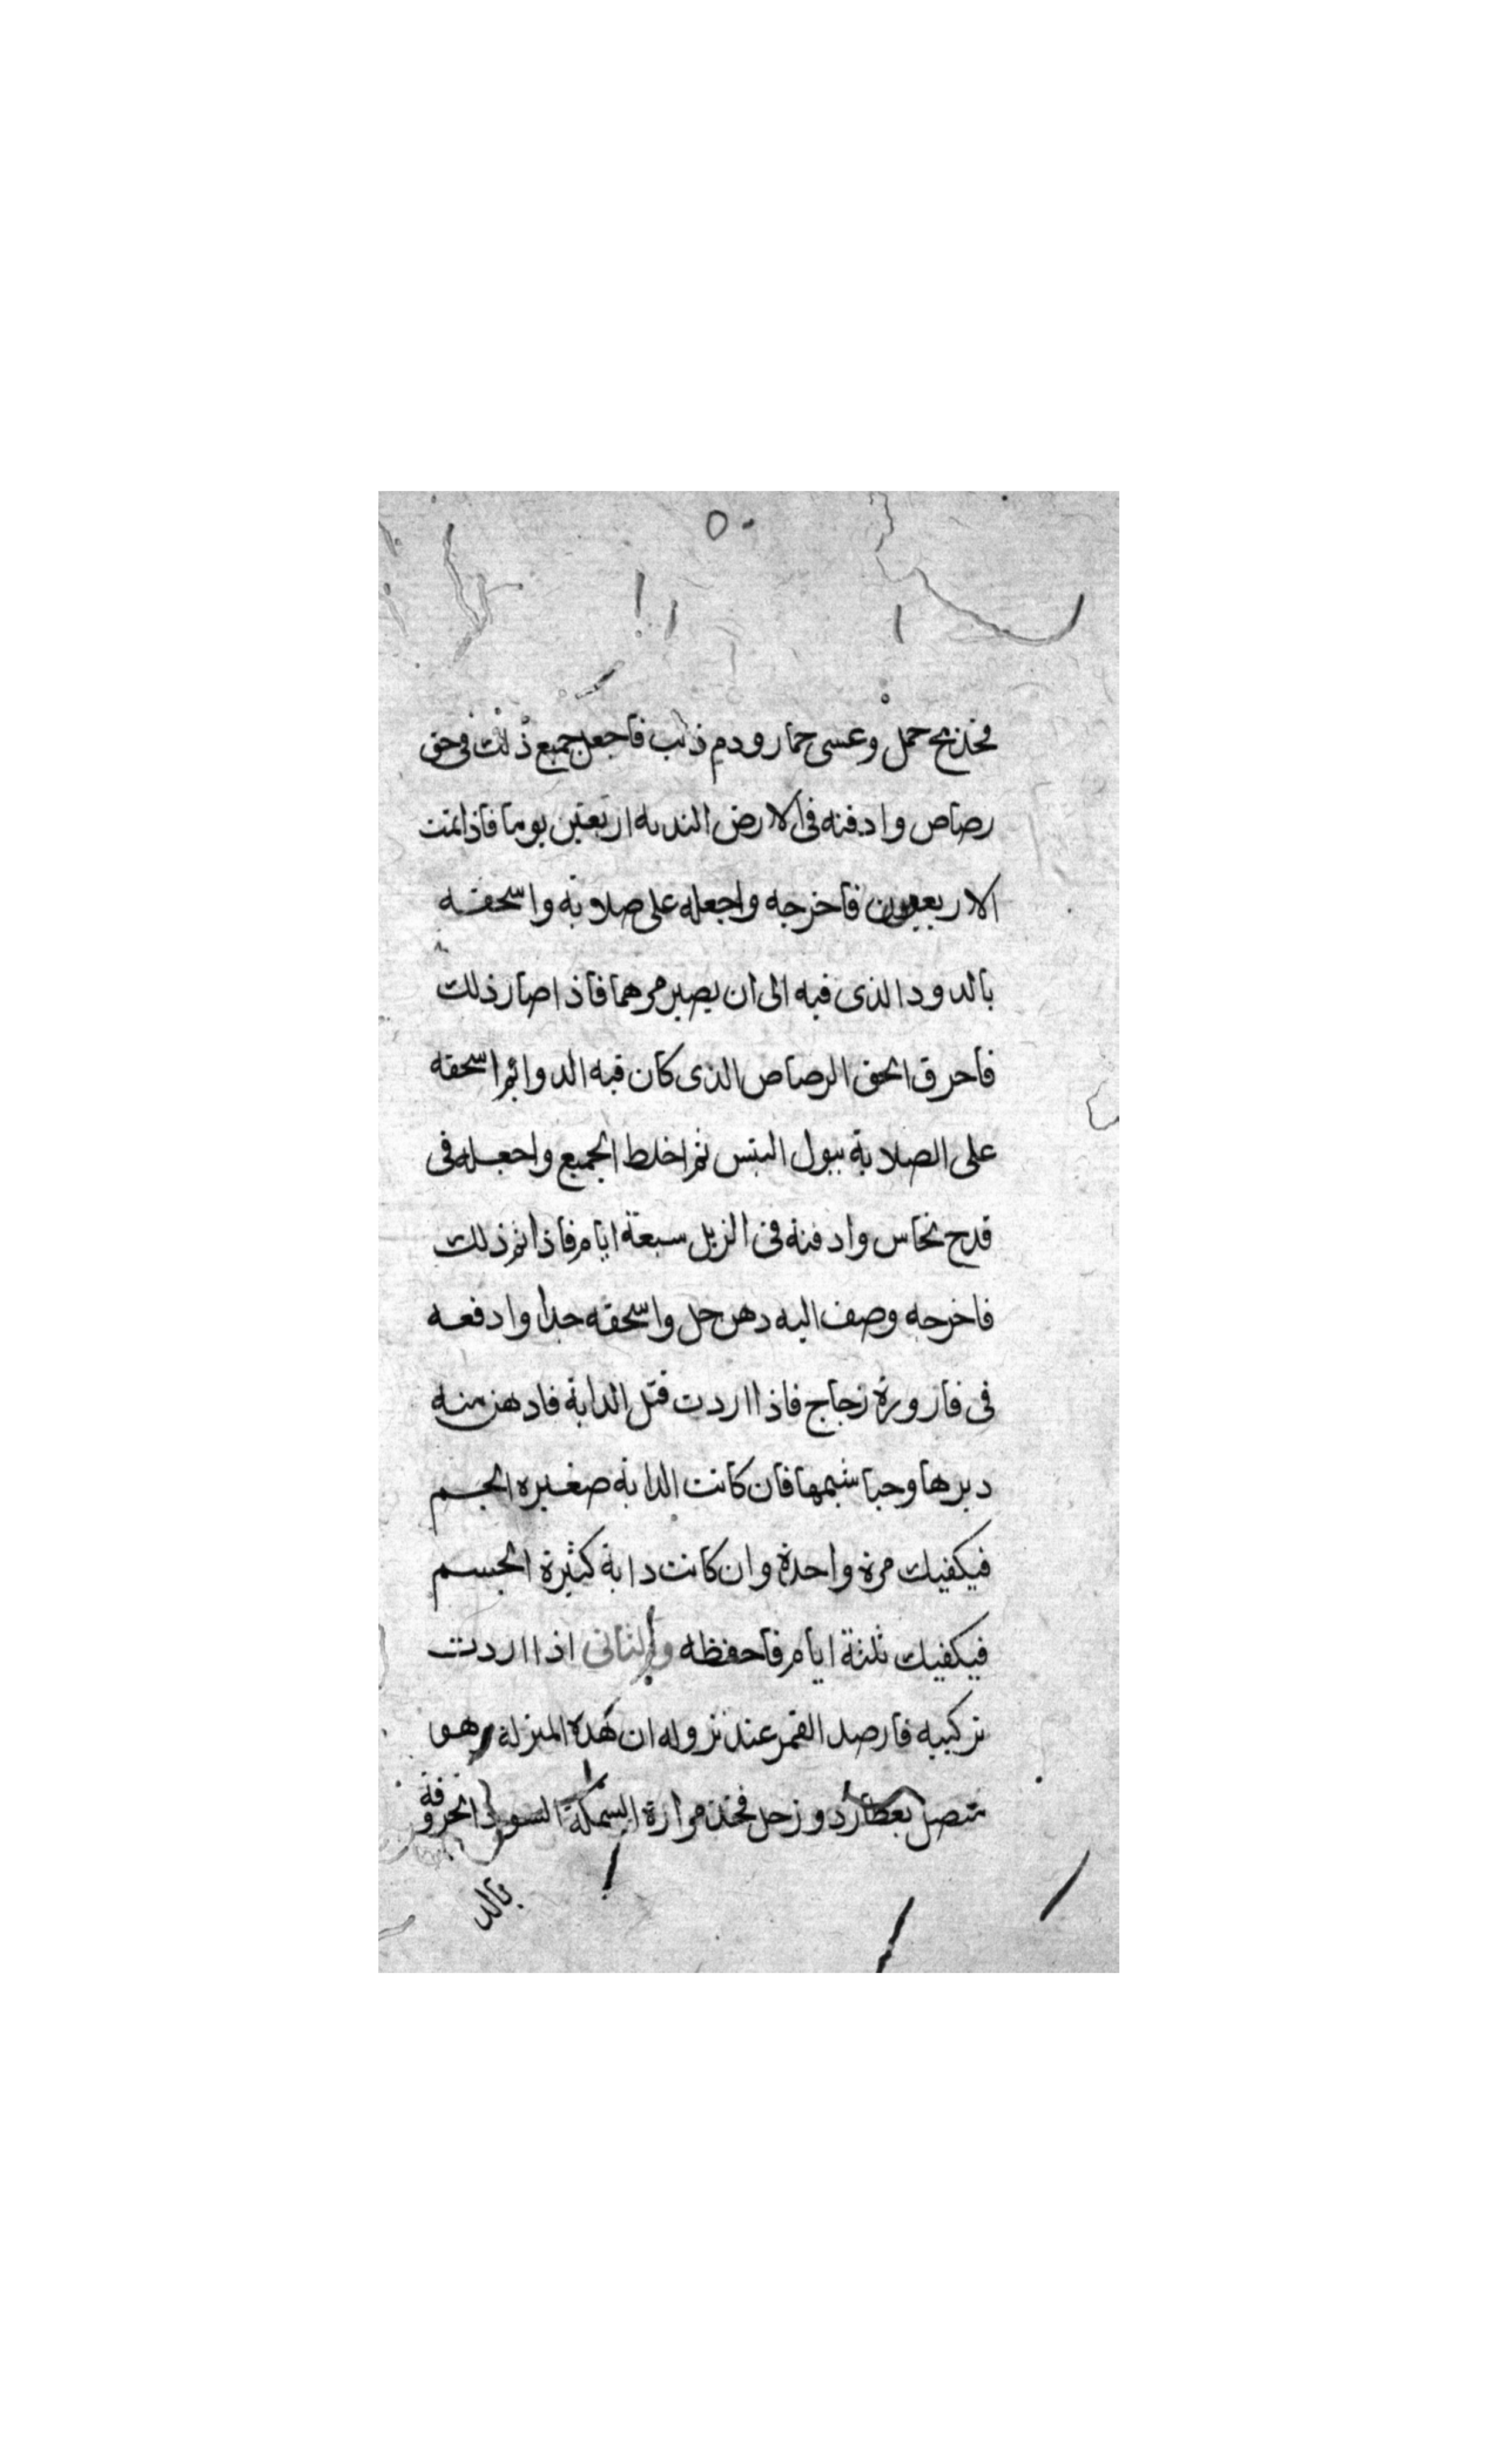 ٥٠
فخذ مخ حمل وعسى حمار ودم ذئب فاجعل جميع ذلك فى حق
رصاص وادفنه فى الارض النديه اربعين يوما فاذا تمت
الاربعون فاخرجه واجعله على صلاية واسحقه
بالدود الذى فيه الى ان يصير مرهما فاذا صار ذلك
فاحرق الحق الرصاص الذى كان فيه الدوا ثم اسحقه
على الصلاية ببول التيس ثم اخلط الجميع واجعله فى
قدح نحاس وادفنه فى الزبل سبعة ايام فاذا تم ذلك
فاخرجه وضف اليه دهن حل واسحقه جدا وادفعه
فى قارورة زجاج فاذا اردت قتل الدابة فادهن منه
دبرها وحيا شيمها فان كانت الدابة صغيره الجسم
فيكفيك مرة واحدة وان كانت دابة كثيرة الجسم
فيكفيك ثلثة ايام فاحفظه والثانى اذا اردت
تركيبه فارصد القمر عند نزوله ان هذه المنزلة وهو
متصل بعطارد وزحل فخذ مرارة السمكة السودا
بالد